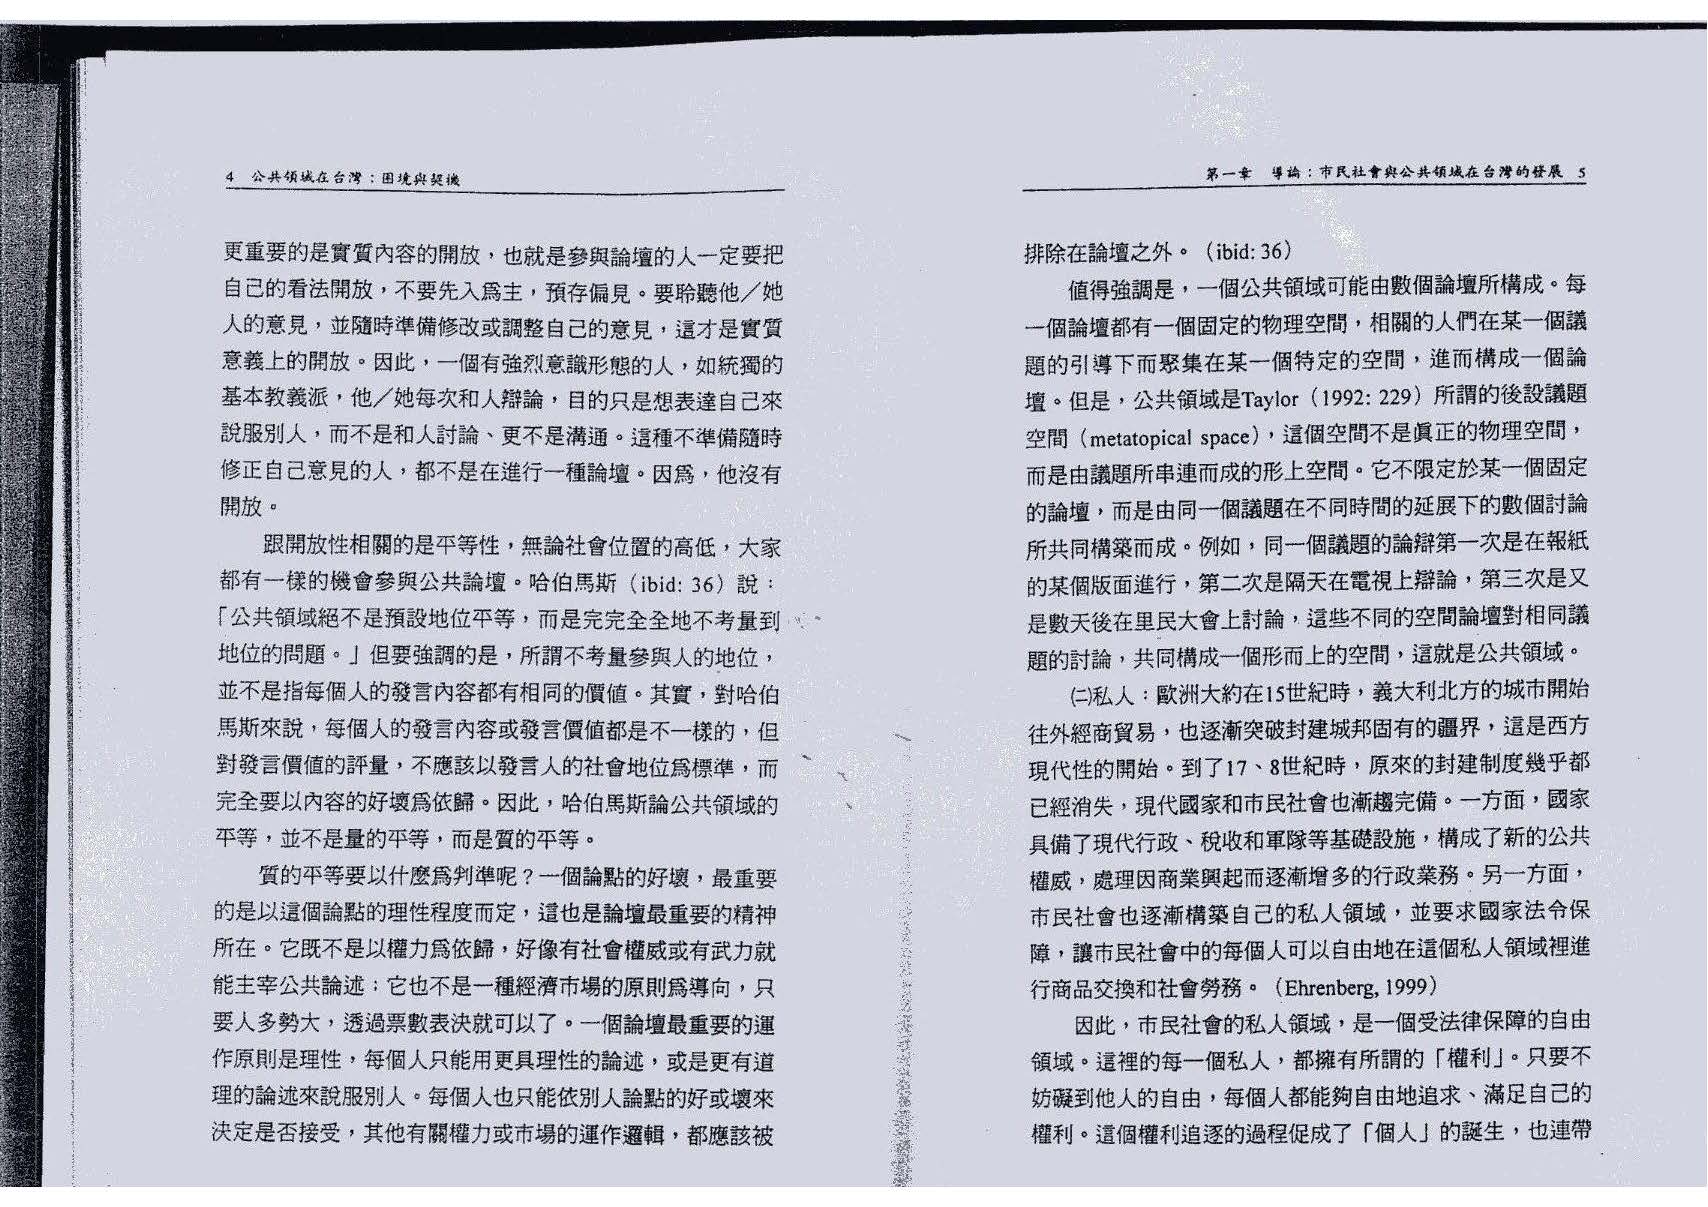 4 公共領域在台灣：困境與契機
更重要的是實質內容的開放，也就是參與論壇的人一定要把
自己的看法開放，不要先入爲主，預存偏見。要聆聽他／她
人的意見，並隨時準備修改或調整自己的意見，這才是實質
意義上的開放。因此，一個有強烈意識形態的人，如統獨的
基本教義派，他／她每次和人辯論，目的只是想表達自己來
說服別人，而不是和人討論、更不是溝通。這種不準備隨時
修正自己意見的人，都不是在進行一種論壇。因爲，他沒有
開放。
跟開放性相關的是平等性，無論社會位置的高低，大家
都有一樣的機會參與公共論壇。哈伯馬斯（ibid: 36）說：
「公共領域絕不是預設地位平等，而是完完全全地不考量到
地位的問題。」但要強調的是，所謂不考量參與人的地位，
並不是指每個人的發言內容都有相同的價值。其實，對哈伯
馬斯來說，每個人的發言內容或發言價值都是不一樣的，但
對發言價值的評量，不應該以發言人的社會地位爲標準，而
完全要以內容的好壞爲依歸。因此，哈伯馬斯論公共領域的
平等，並不是量的平等，而是質的平等。
質的平等要以什麼爲判準呢？一個論點的好壞，最重要
的是以這個論點的理性程度而定，這也是論壇最重要的精神
所在。它既不是以權力爲依歸，好像有社會權威或有武力就
能主宰公共論述；它也不是一種經濟市場的原則爲導向，只
要人多勢大，透過票數表決就可以了。一個論壇最重要的運
作原則是理性，每個人只能用更具理性的論述，或是更有道
理的論述來說服別人。每個人也只能依別人論點的好或壞來
決定是否接受，其他有關權力或市場的運作邏輯，都應該被
第一章 導論：市民社會與公共領域在台灣的發展 5
排除在論壇之外。（ibid: 36）
值得強調是，一個公共領域可能由數個論壇所構成。每
一個論壇都有一個固定的物理空間，相關的人們在某一個議
題的引導下而聚集在某一個特定的空間，進而構成一個論
壇。但是，公共領域是Taylor（1992: 229）所謂的後設議題
空間（metatopical space），這個空間不是眞正的物理空間，
而是由議題所串連而成的形上空間。它不限定於某一個固定
的論壇，而是由同一個議題在不同時間的延展下的數個討論
所共同構築而成。例如，同一個議題的論辯第一次是在報紙
的某個版面進行，第二次是隔天在電視上辯論，第三次是又
是數天後在里民大會上討論，這些不同的空間論壇對相同議
題的討論，共同構成一個形而上的空間，這就是公共領域。
㈡私人：歐洲大約在15世紀時，義大利北方的城市開始
往外經商貿易，也逐漸突破封建城邦固有的疆界，這是西方
現代性的開始。到了17、8世紀時，原來的封建制度幾乎都
已經消失，現代國家和市民社會也漸趨完備。一方面，國家
具備了現代行政、稅收和軍隊等基礎設施，構成了新的公共
權威，處理因商業興起而逐漸增多的行政業務。另一方面，
市民社會也逐漸構築自己的私人領域，並要求國家法令保
障，讓市民社會中的每個人可以自由地在這個私人領域裡進
行商品交換和社會勞務。（Ehrenberg, 1999）
因此，市民社會的私人領域，是一個受法律保障的自由
領域。這裡的每一個私人，都擁有所謂的「權利」。只要不
妨礙到他人的自由，每個人都能夠自由地追求、滿足自己的
權利。這個權利追逐的過程促成了「個人」的誕生，也連帶